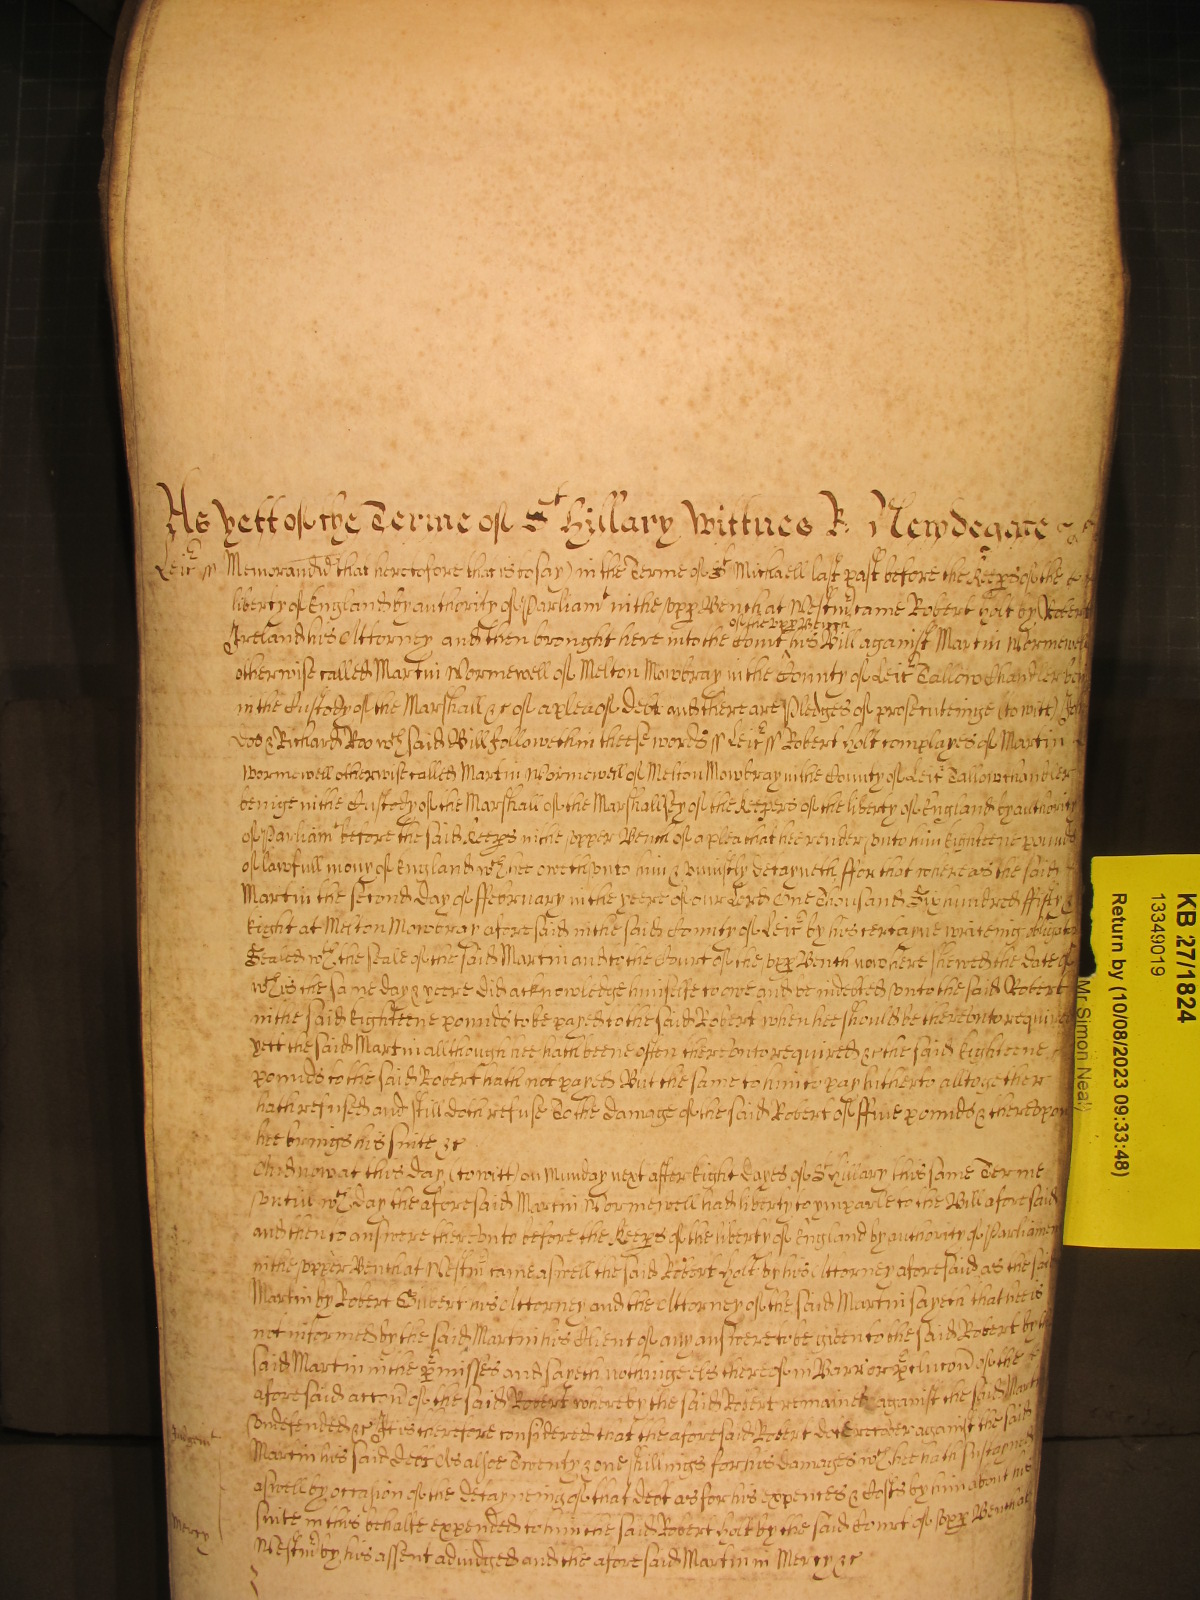 As yett of the Terme of St Hillary Wittnes R: Newdegate
Leic ss Memorand that heretofore that is to say) in the Terme of St Michaell last past before the Keeps of the
liberty of England by authority of Parliamt in the vpp Bench at Westm came Robert Holt by Robert
Ireland his Attorney and then brought here into the Court of the vpp Bench his Bill against Martin Wormewell
otherwise called Martin Wormewell of Melton Mowbray in the County of Leic Tallow Chandler
in the Custody of the Marshall &c of a plea of debt and there are Pledges of prosecuteinge (to witt) John
Doo & Richard Roo wch said Bill followeth in theese words ss Leic ss Robert Holt complaynes of Martin
Wormewell otherwise called Martin Wormewell of Melton Mowbray in the County of Leic Tallowchandler
beinge in the Custody of the Marshall of the Marshallsey of the Keepers of the liberty of England by authority
of Parliamt before the said Keeps in the vpper Bench of a plea that hee render vnto him Eighteene pounds
of lawfull mony of England wch hee oweth vnto him & vniustly detayneth ffor that whereas the said
Martin the second Day of ffebruary in the yeere of our Lord One Thousand Six hundred ffifty &
Eight at Melton Mowbray aforesaid in the said County of Leic by his certayne writeinge obligatory
Sealed wth the seale of the said Martin and to the Court of the vpp Bench now here shewed the date of
wch is the same day & yeere did acknowledge himselfe to owe and be indebted vnto the said Robert
in the said Eighteene pounds to be payed to the said Robert when hee should be therevnto required
yett the said Martin allthough hee hath beene often therevnto required &c the said Eighteene
pounds to the said Robert hath not payed But the same to him to pay hitherto alltogether
hath refused and still doth refuse To the damage of the said Robert of ffive pounds & therevpon
hee brings his suite &c
And now at this day (to witt) on Munday next after Eight dayes of St Hillary this same Terme
vntill wch day the aforesaid Martin Wormewell had liberty to ymparle to the Bill aforesaid
and then to answere therevnto before the Keeps of the liberty of England by authority of Parliament
in the vpper Bench at Westm came aswell the said Robert Holt by his Attorney aforesaid as the said
Martin by Robert Gilbert his Attorney and the Attorney of the said Martin sayeth that hee is
not informed by the said Martin his Client of any answere to be given to the said Robert by the
said Martin in the pmisses and sayeth nothinge els thereof in Barr or pclucon of the
aforesaid accon of the said Robert whereby the said Robert remaines against the said Martin
vndefended &c It is therefore considered that the aforesaid Robert doe recover against the said
Judgmt
Martin his said debt As alsoe Twenty & one shillings for his damages wch hee hath sustayned
aswell by occasion of the detayneing of that debt as for his expences & Costs by him about his
suite in this behalfe expended to him the said Robert Holt by the said Court of vpp Bench at
Mercy
Westm by his assent adiudged and the aforesaid Martin in Mercy &c
KB 27/1824
13349019
Return by (10/08/2023 09:33:48)
Mr Simon Neal